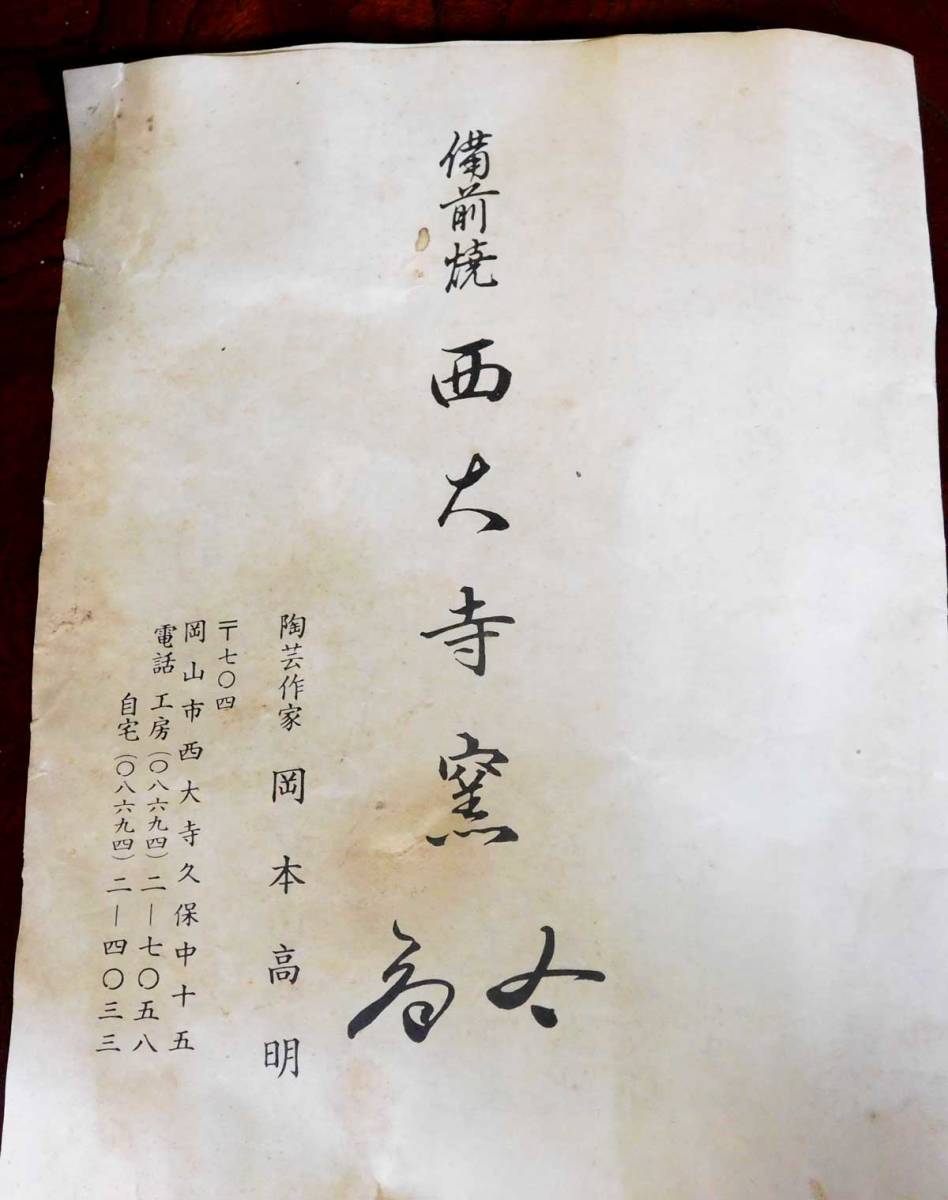 備前焼 西大寺窯
陶芸作家 岡本高明
〒七〇四
岡山市西大寺久保中十五
電話 工房(〇八六九四)二―七〇五八
自宅(〇八六九四)二―四〇三三